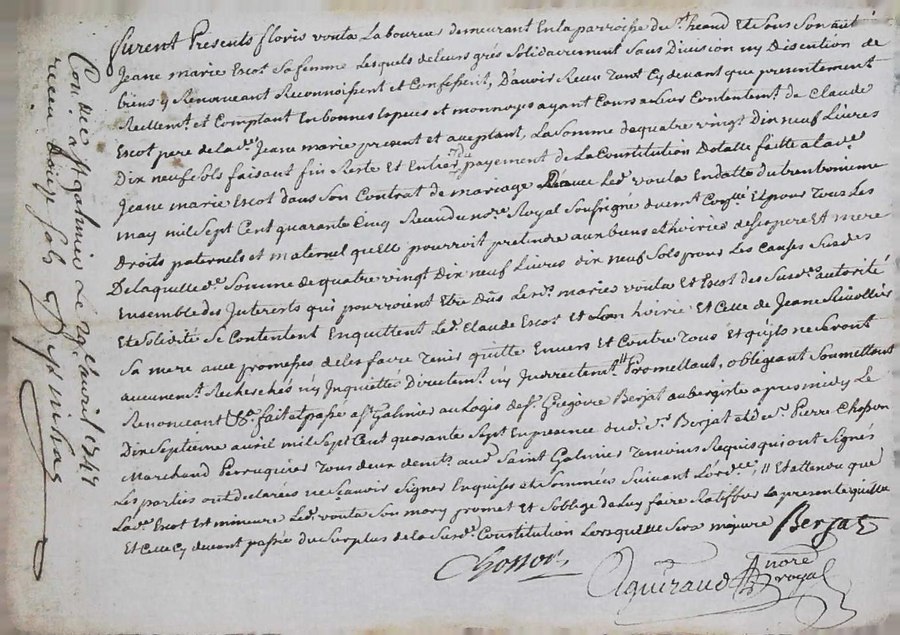 furent Presents floris voula Laboureur demeurant En la parroisse du St heand Et Sous Son autté
Jeane marie Escot Sa femme Lesquels de leurs grés Solidairement Sans Diuision ny Discution de
biens y Renonceant Reconnoissent et Confessent, D'auoir Receu Tant Cy deuant que presentement
Reellemt. et Comptant En bonnes Especes et monnoyes ayant Cours a Leur Contentemt. de Claude
Escot pere de la de. Jeane marie present et aceptant, La Somme de quatre vingt Dix neuf Livres
Dix neuf Sols faisant fin Reste et Entier payement de La Constitution Dotalle faitte a la de
Jeane marie Escot dans Son Contrat de mariage auec Led. voula En datte du trente unieme
may mil Sept Cent quarante Cinq Receu de nore. Royal Soussigne duemt Conlé. Et pour Tous Les
Droits paternels et maternel qu'elle pourroit pretendre aux biens et hoiries de Ses pere Et mere
De laquelle de. Somme de quatre vingt Dix neuf Livres dix neuf Sols pour Les Causes Susdes
Ensemble des Interests qui pourroint Etre Dûs Lesds. maries voula et Escot des Susds. autorité
Et Solidité Se Contentent En quittent Led. Claude Escot et Son hoirie Et Celle de Jeane
Sa mere auec promesses de les faire Tenir quitte Enuers et Contre Tous Et qu'ils ne Seront
aucunemt. Recherchés ny Inquiettés Directemt. ny Indirectemt. Promettant, obligeant Soumettant
Renonceant &a. fait et passé a St Galmier au Logis de Sr. Gregoire Berjat aubergiste apres midy Le
Dix Septieme auril mil Sept Cent quarante Sept En presence dud. Sr. Berjat et de Sr. Pierre Chopon
Marchand Perruquier Tous deux demts. aud. Saint Galmier Temoins Requis qui ont Signés
Les parties ont declarées ne Scauoir Signer Enquises et Sommées Suivant L'ordce. // Et attendu que
Lade. Escot Est mineure Led. voula Son mary promet et S'oblige de Luy faire Ratiffier La presente quitte
Et Celle Cy deuant passée du Surplus de la Sude. Constitution Lorsqu'elle Sera majeure Berjat
Chopon
Aguiraud nore royal
Con. dec. a St galmier Le 29 auril 1747
receu douze sols